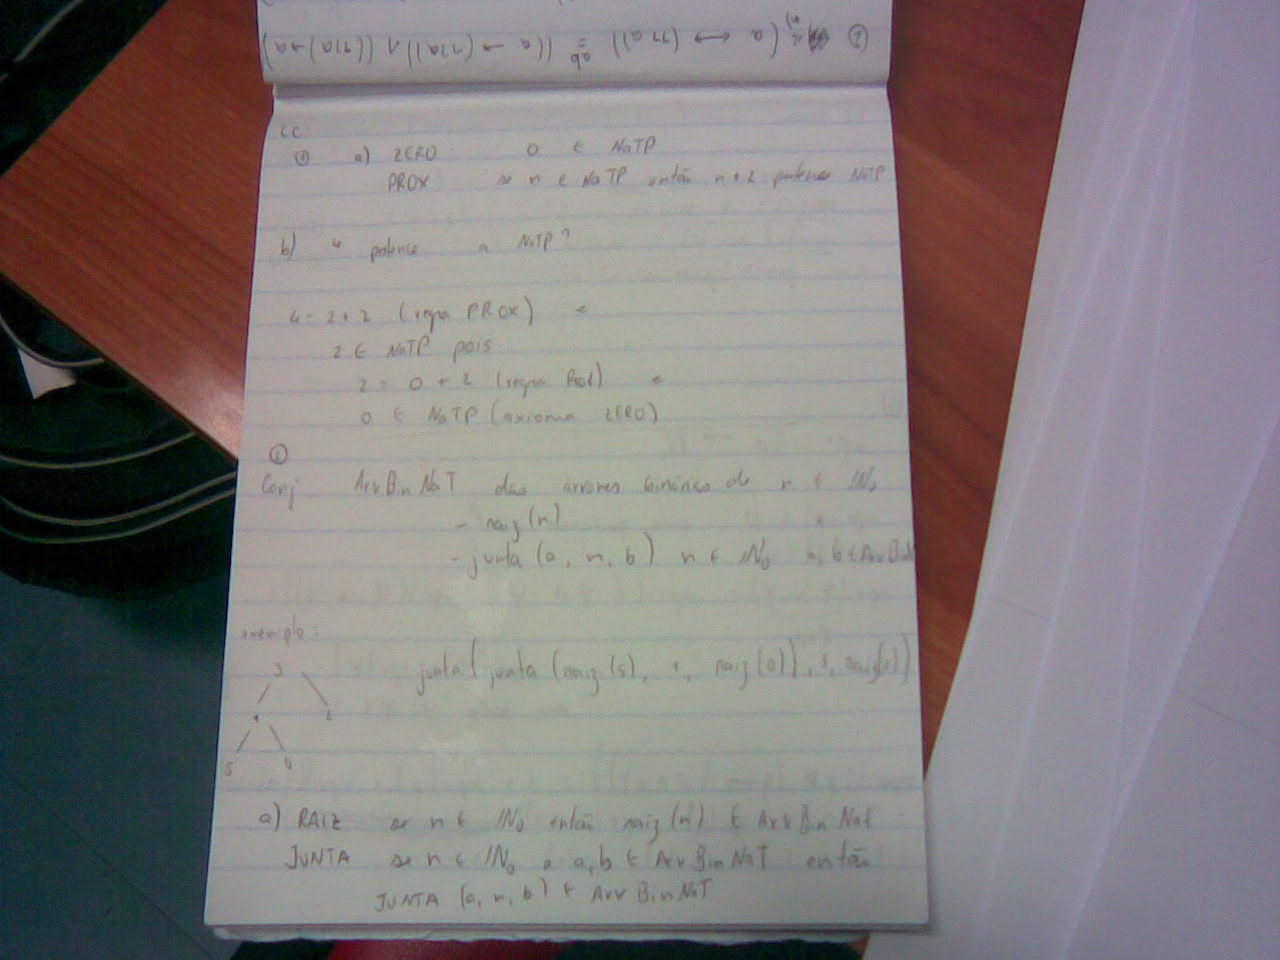 ② (a ↔ (¬¬a)) =ab ((a → (¬¬a)) ∧ ((¬¬a) → a))
LC
① a) ZERO: 0 ∈ NaTP
PROX: se n ∈ NaTP então n+2 pertence NaTP
b) 4 pertence a NaTP?
4 = 2+2 (regra PROX)
2 ∈ NaTP pois
2 = 0 + 2 (regra
0 ∈ NaTP (axioma ZERO)
①
Conj ArvBinNaT das árvores binárias de n ∈ IN₀
- raiz(n)
- junta (a, n, b) n ∈ IN₀ a, b ∈ ArvBinN
exemplo:
3 junta( junta (raiz(5), 1, raiz(0)), 3, raiz(2))
1 2
5 0
a) RAIZ se n ∈ IN₀ então raiz(n) ∈ ArvBinNat
JUNTA se n ∈ IN₀ e a,b ∈ ArvBinNaT então
JUNTA (a, n, b) ∈ ArvBinNaT